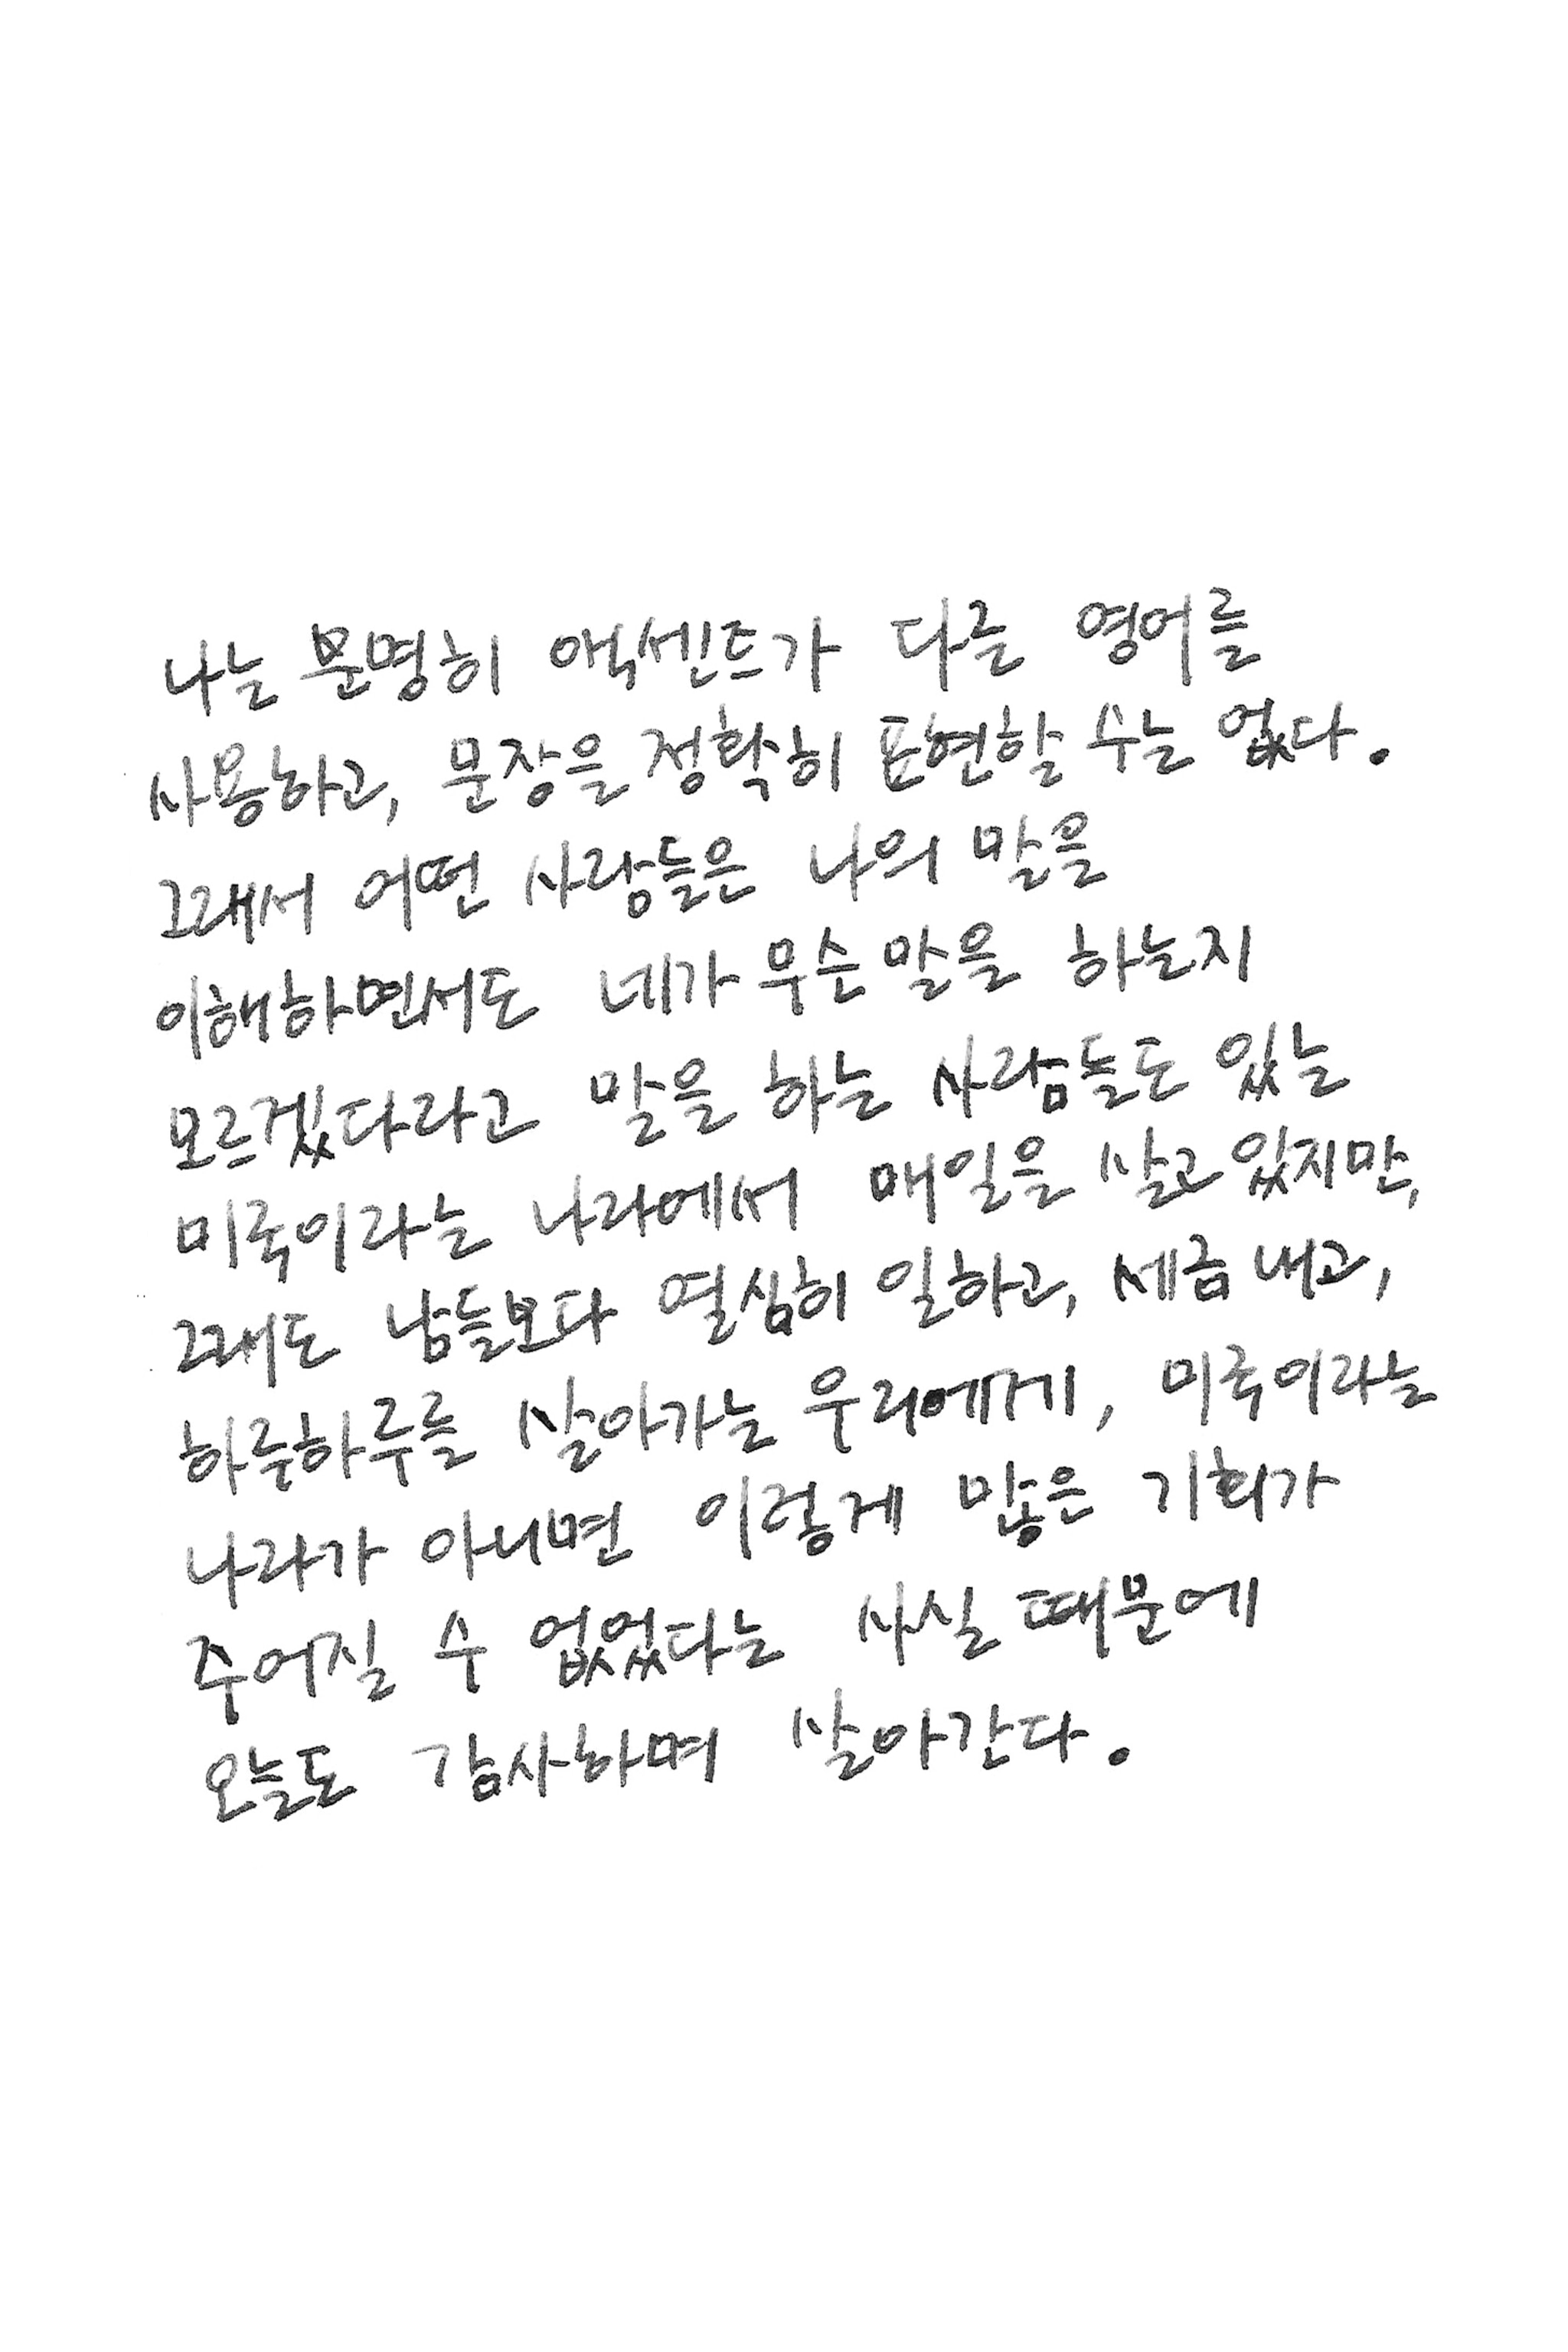 나는 분명히 액센트가 다른 영어를
사용하고, 문장을 정확히 표현할 수는 없다.
그래서 어떤 사람들은 나의 말을
이해하면서도 네가 무슨 말을 하는지
모르겠다라고 말을 하는 사람들도 있는
미국이라는 나라에서 매일을 살고 있지만,
그래도 남들보다 열심히 일하고, 세금 내고,
하루하루를 살아가는 우리에게, 미국이라는
나라가 아니면 이렇게 많은 기회가
주어질 수 없었다는 사실 때문에
오늘도 감사하며 살아간다.